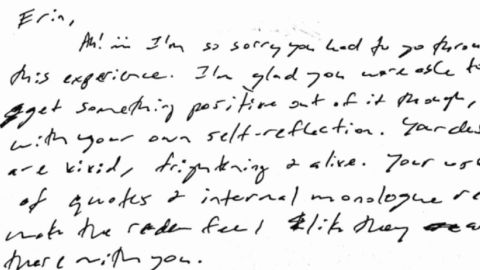 Erin,
Ah! I'm so sorry you had to go throu
this experience. I'm glad you were able to
get something positive out of it though,
with your own self-reflection. Your des
are vivid, frightening & alive. Your us
of quotes & internal monologue re
make the reader feel like they
there with you.